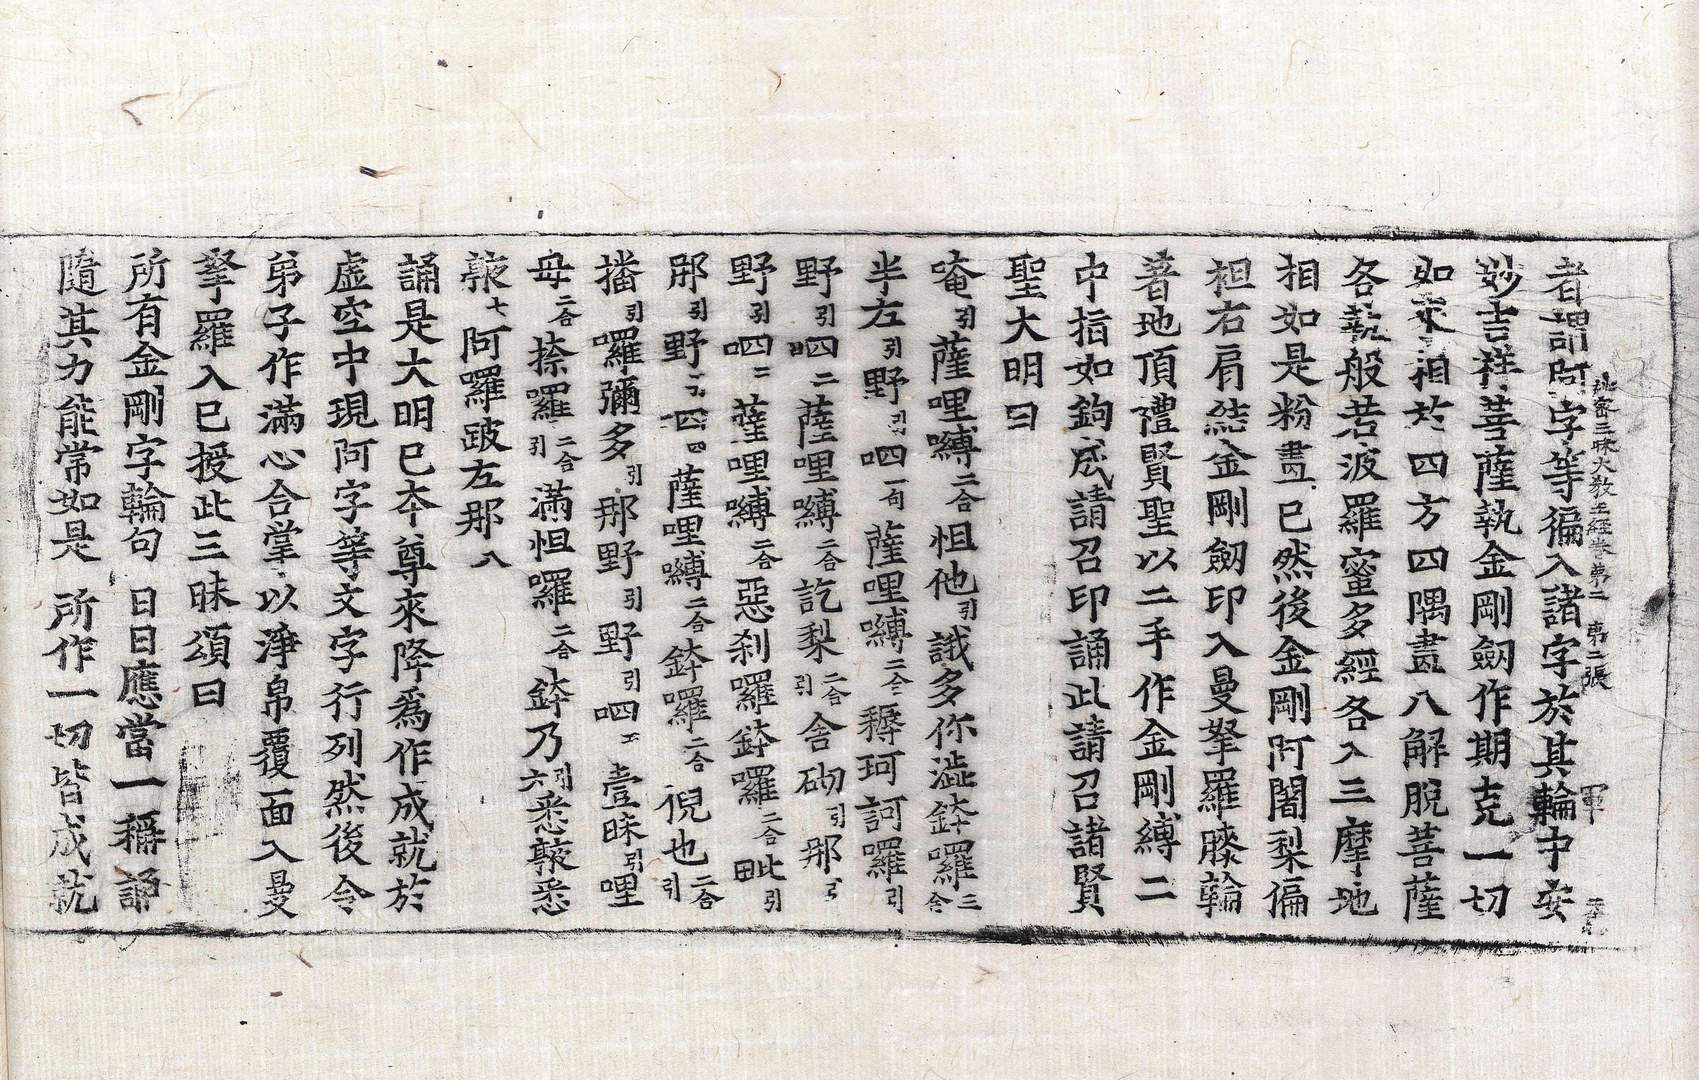 祕密三昧大教王經卷第二 第二張 軍
者謂阿字等徧入諸字於其輪中安
妙吉祥菩薩執金剛劒作期克一切
如來相於四方四隅畫八解脫菩薩
各執般若波羅蜜多經各入三摩地
相如是粉畫已然後金剛阿闍梨徧
袒右肩結金剛劒印入曼拏羅膝輪
著地頂禮賢聖以二手作金剛縛二
中指如鉤成請召印誦此請召諸賢
聖大明曰
唵引薩哩嚩二合怛他引誐多你澁鉢囉三合
半左引野引呬一句薩哩嚩二合褥珂訶囉引
野引呬二薩哩嚩二合訖梨二合引舍砌引那引
野引呬三薩哩嚩二合惡刹囉鉢囉二合毗引
那引野引呬四薩哩嚩二合鉢囉二合倪也二合引
播引囉彌多引那野引野引呬五壹昧引哩
毋二合捺囉二合引滿怛囉二合鉢乃引六悉蔽悉
蔽七阿囉跛左那八
誦是大明已本尊來降爲作成就於
虛空中現阿字等文字行列然後令
弟子作滿心合掌以淨帛覆面入曼
拏羅入已授此三昧頌曰
所有金剛字輪句 日日應當一稱誦
隨其力能常如是 所作一切皆成就